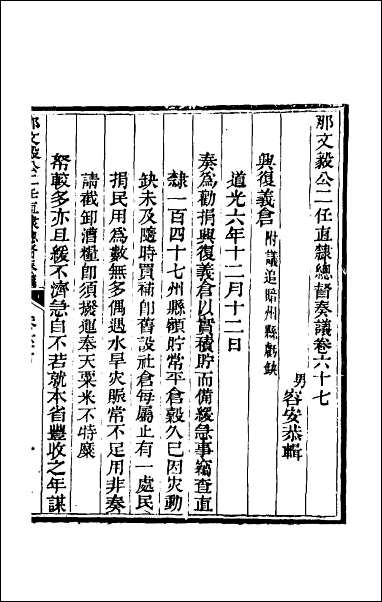 那文毅公二任直隸總督奏議卷六十七
男容安恭輯
興復義倉 附議追賠州縣虧缺
道光六年十二月十二日
奏為勸捐興復義倉以實積貯而備緩急事竊查直
隸一百四十七州縣額貯常平倉穀久已因灾動
缺未及隨時買補卽舊設社倉每屬止有一處民
捐民用為數無多偶遇水旱灾賑常不足用非奏
請截卸漕糧卽須撥運奉天粟米不特糜
帑較多亦且緩不濟急自不若就本省豐收之年謀
那文毅公二任直隸總督奏議